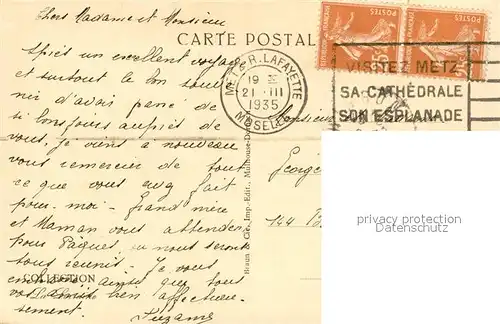 Chers Madame et Monsieur
Après un excellent voyage
et surtout le bon souve
nir d'avoir passé de
si bons jours auprès de
vous, je viens à nouveau
vous remercier de tout
ce que vous avez fait
pour moi. Grand'mère
et Maman vous attendent
pour Pâques, où nous serons
tous réunis. Je vous
embrasse ainsi que tous
vos bien affectueu-
sement.
Suzanne
COLLECTION
CARTE POSTALE
Braun & Cie, Imp.-Edit., Mulhouse-Dornach
METZ R. LAFAYETTE
19 H
21 III
1935
MOSELLE
POSTES
POSTES
VISITEZ METZ
SA CATHÉDRALE
SON ESPLANADE
Monsieur
George
privacy protection
Datenschutz